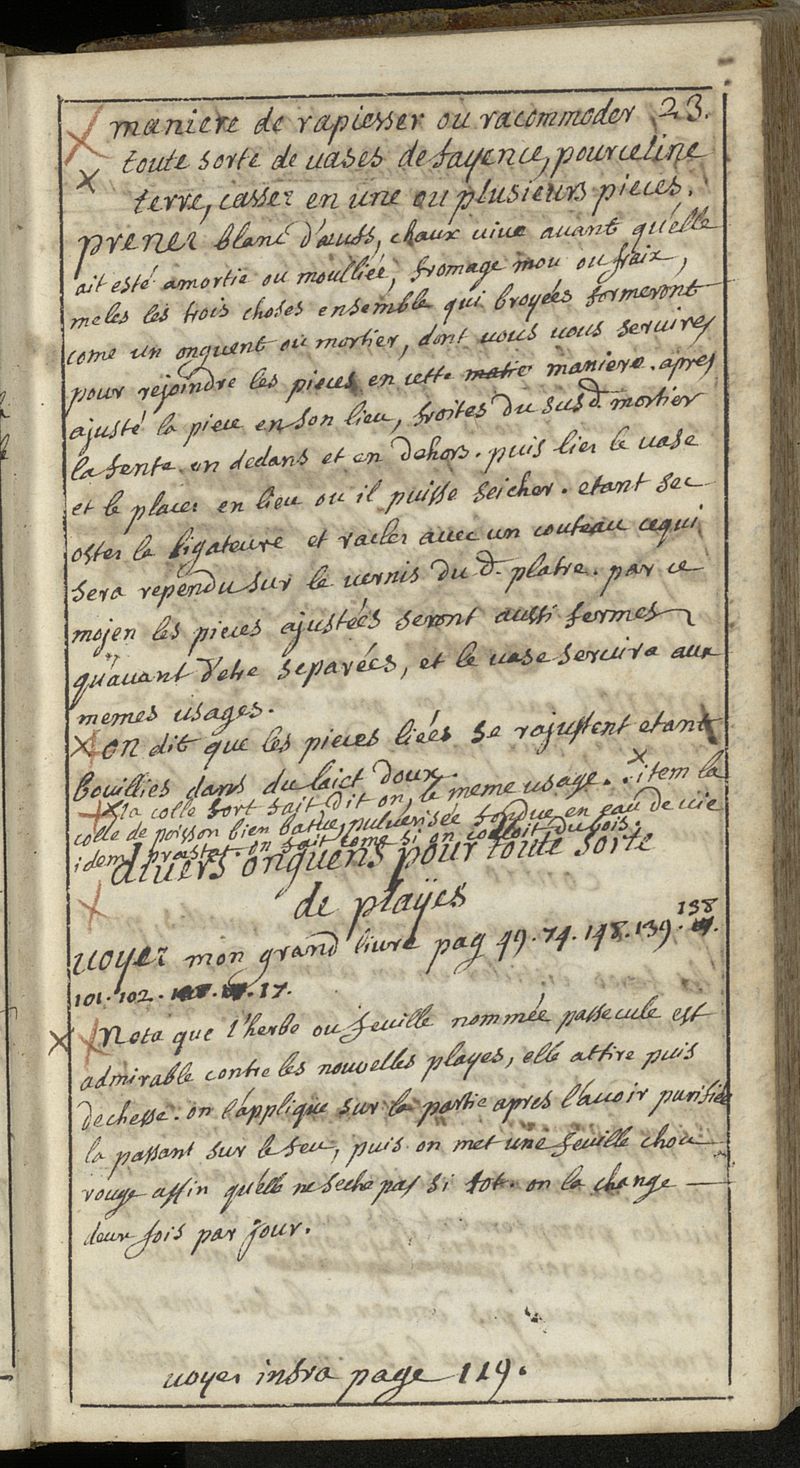 maniere de rapiesser ou racommoder 23.
toute sorte de vases de fayence, pourceline
terre, cassez en une ou plusieurs pieces.
prenez blanc d'œufs, chaux vive avant qu'elle
ait esté amortie ou moulliée, fromage mou ou fraix,
meles les trois choses ensemble qui broyées formeront
come un onguent ou mortier, dont vous vous servires
pour rejoindre les pieces en cette matie maniere. apres
ajusté la piece en son lieu, froites du susd. mortier
la fente en dedans et en dehors. puis lier le vase
et le placer en lieu ou il puisse seicher. etant sec
oster la ligateure et racler avec un couteau ce qui
sera rependu sur le vernis du d. platre. par ce
mojen les pieces ajustées seront aussi fermes
qu'avant d'etre separées, et le vase servira aux
memes usages.
on dit que les pieces liées se rajustent etant
bouillies dans du laict doux.
la colle fort fait dit on, le meme usage. item la
colle de poisson bien batue, pulverisée fondue en eau de vie
idem praestat. on fait come si on colloit du bois.
divers onguens pour toute sorte
de playes
voyez mon grand livre pag 49. 74. 148. 139. 138
101. 102. 17.
Nota que l'herbe ou feuille nommée passecule est
admirable contre les nouvelles playes, elle attire puis
dechesse. on l'applique sur la partie apres l'avoir purifiée
la passant sur le feu, puis on met une feuille chou
rouge affin qu'elle ne seche pas si tot. on la change
deux fois par jour.
voyer infra page 119.